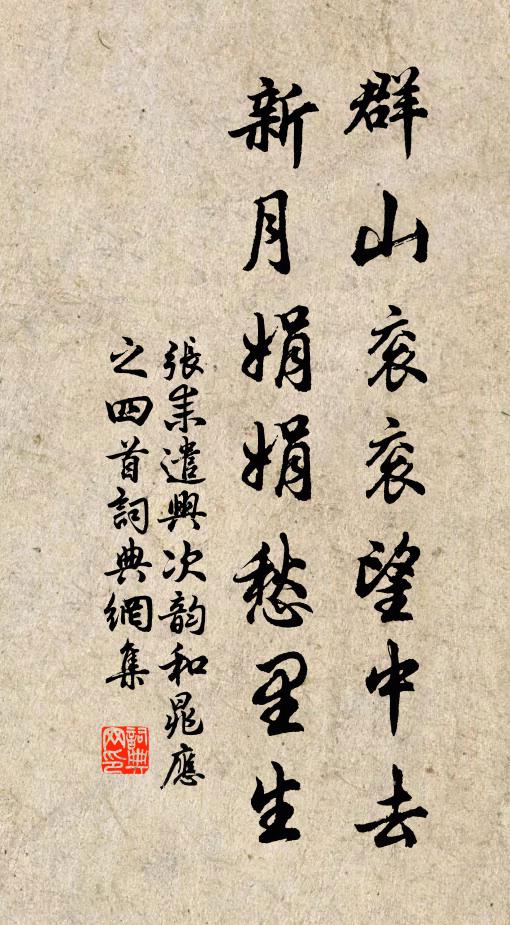 群山衮衮望中去
新月娟娟愁里生
張耒遣興次韵和晁應
之四首詞典網集
詞典網印